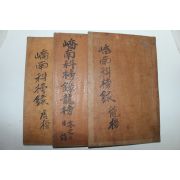 嶠南科榜錄 龍榜
嶠南科榜錄龍榜
嶠南科榜錄 虎榜